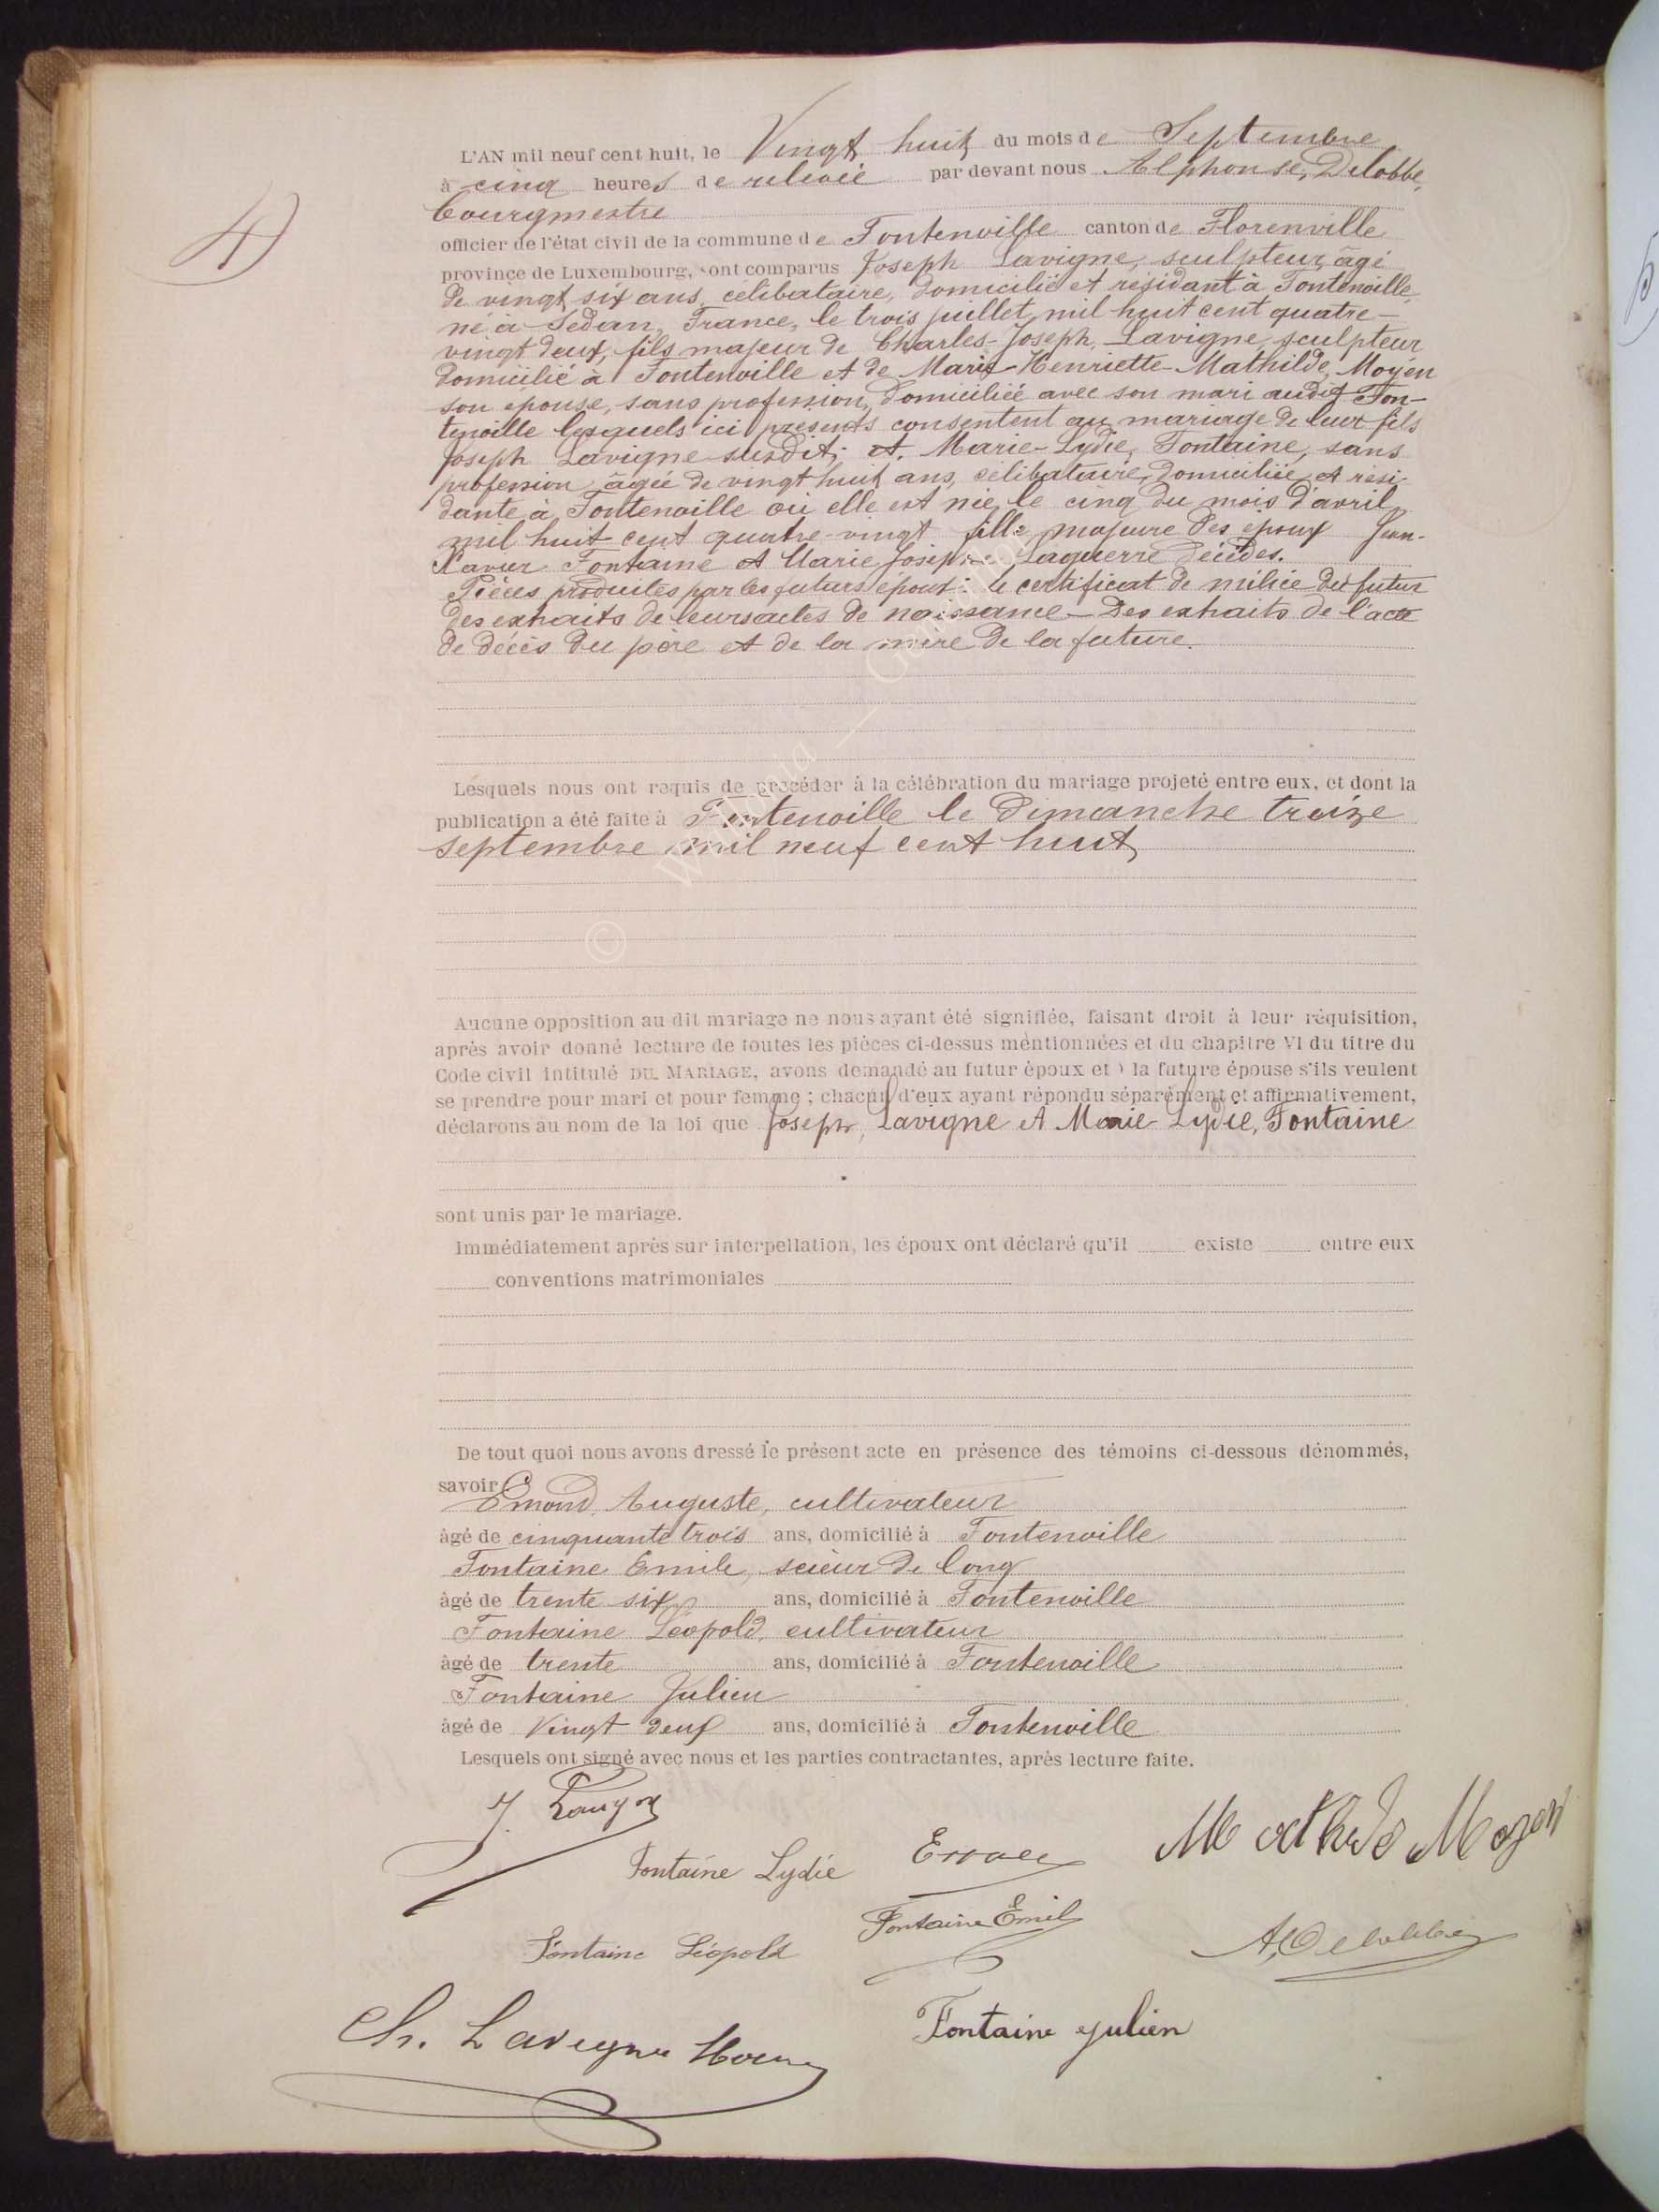 4)
L'AN mil neuf cent huit, le Vingt huit du mois de Septembre
à cinq heures de relevée par devant nous Alphonse, Delobbe,
bourgmestre
officier de l'état civil de la commune de Fontenoille canton de Florenville
province de Luxembourg, sont comparus Joseph Lavigne, sculpteur, âgé
de vingt six ans, célibataire, domicilié et résidant à Fontenoille,
né à Sedan, France, le trois juillet mil huit cent quatre-
vingt deux, fils majeur de Charles-Joseph, Lavigne, sculpteur
domicilié à Fontenoille et de Marie-Henriette-Mathilde, Moyen
son epouse, sans profession, domiciliée avec son mari audit Fon-
tenoille lesquels ici présents consentent au mariage de leur fils
Joseph Lavigne susdit; et Marie-Lydie, Fontaine, sans
profession, âgée de vingt huit ans, célibataire, domiciliée et rési-
dante à Fontenoille où elle est née le cinq du mois d'avril
mil huit cent quatre-vingt fille majeure des epoux Jean-
Xavier Fontaine et Marie Josephe Laguerre décédés.
Pièces produites par les futurs epoux: le certificat de milice du futur
des extraits de leurs actes de naissance - Des extraits de l'acte
de décès du père et de la mère de la future.
Lesquels nous ont requis de procéder à la célébration du mariage projeté entre eux, et dont la
publication a été faite à Fontenoille le dimanche treize
septembre mil neuf cent huit
©
Aucune opposition au dit mariage ne nous ayant été signifiée, faisant droit à leur réquisition,
après avoir donné lecture de toutes les pièces ci-dessus mentionnées et du chapitre VI du titre du
Code civil intitulé DU MARIAGE, avons demandé au futur époux et à la future épouse s'ils veulent
se prendre pour mari et pour femme ; chacun d'eux ayant répondu séparément et affirmativement,
déclarons au nom de la loi que Joseph, Lavigne et Marie-Lydie, Fontaine
sont unis par le mariage.
Immédiatement après sur interpellation, les époux ont déclaré qu'il existe entre eux
conventions matrimoniales
De tout quoi nous avons dressé le présent acte en présence des témoins ci-dessous dénommés,
savoir Emond, Auguste, cultivateur
âgé de cinquante trois ans, domicilié à Fontenoille
Fontaine Emile, scieur de long
âgé de trente six ans, domicilié à Fontenoille
Fontaine Léopold, cultivateur
âgé de trente ans, domicilié à Fontenoille
Fontaine Julien
âgé de Vingt deux ans, domicilié à Fontenoille
Lesquels ont signé avec nous et les parties contractantes, après lecture faite.
J. Lavigne
Mathilde Moyen
Fontaine Lydie
Fontaine Emile
Fontaine Léopold
A, Delobbe
Ch. Lavigne
Fontaine Julien